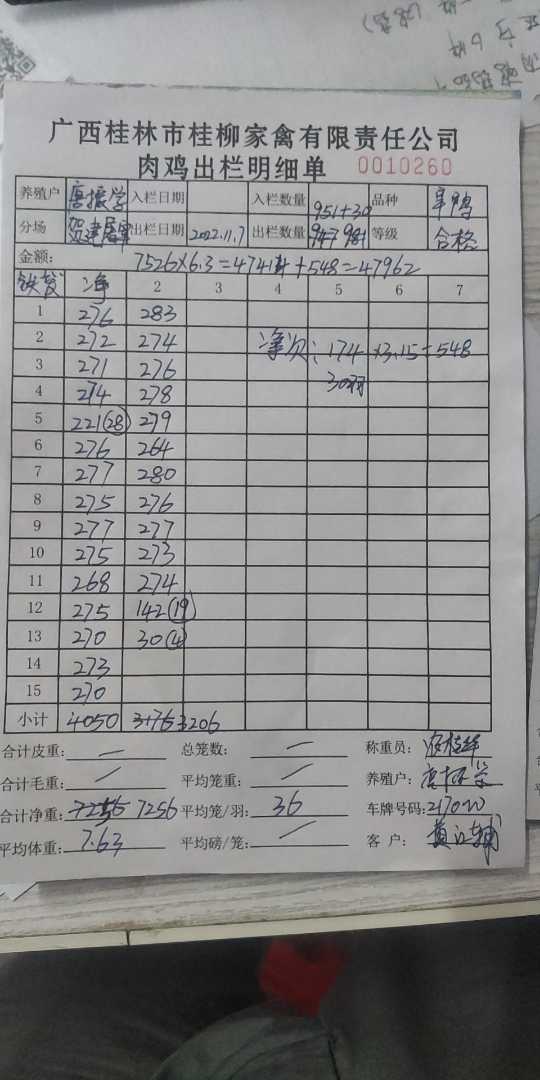 广西桂林市桂柳家禽有限责任公司
肉鸡出栏明细单 0010260
养殖户 唐振学 入栏日期 入栏数量 951+30 品种
分场 出栏日期 2022.11.7 出栏数量 947 981 等级 合格
金额: 7526×6.3=47414+548=47962
净 2 3 4 5 6 7
1 276 283
2 272 274 净次: 174 ×3.15=548
3 271 276 30羽
4 274 278
5 221(28) 279
6 276 264
7 277 280
8 275 276
9 277 277
10 275 273
11 268 274
12 275 142(19)
13 270 30(4)
14 273
15 270
小计 4050 3176 3206
合计皮重: 总笼数: 称重员:
合计毛重: 平均笼重: 养殖户:
合计净重: 7256 平均笼/羽: 36 车牌号码:
平均体重: 7.63 平均磅/笼: 客户: